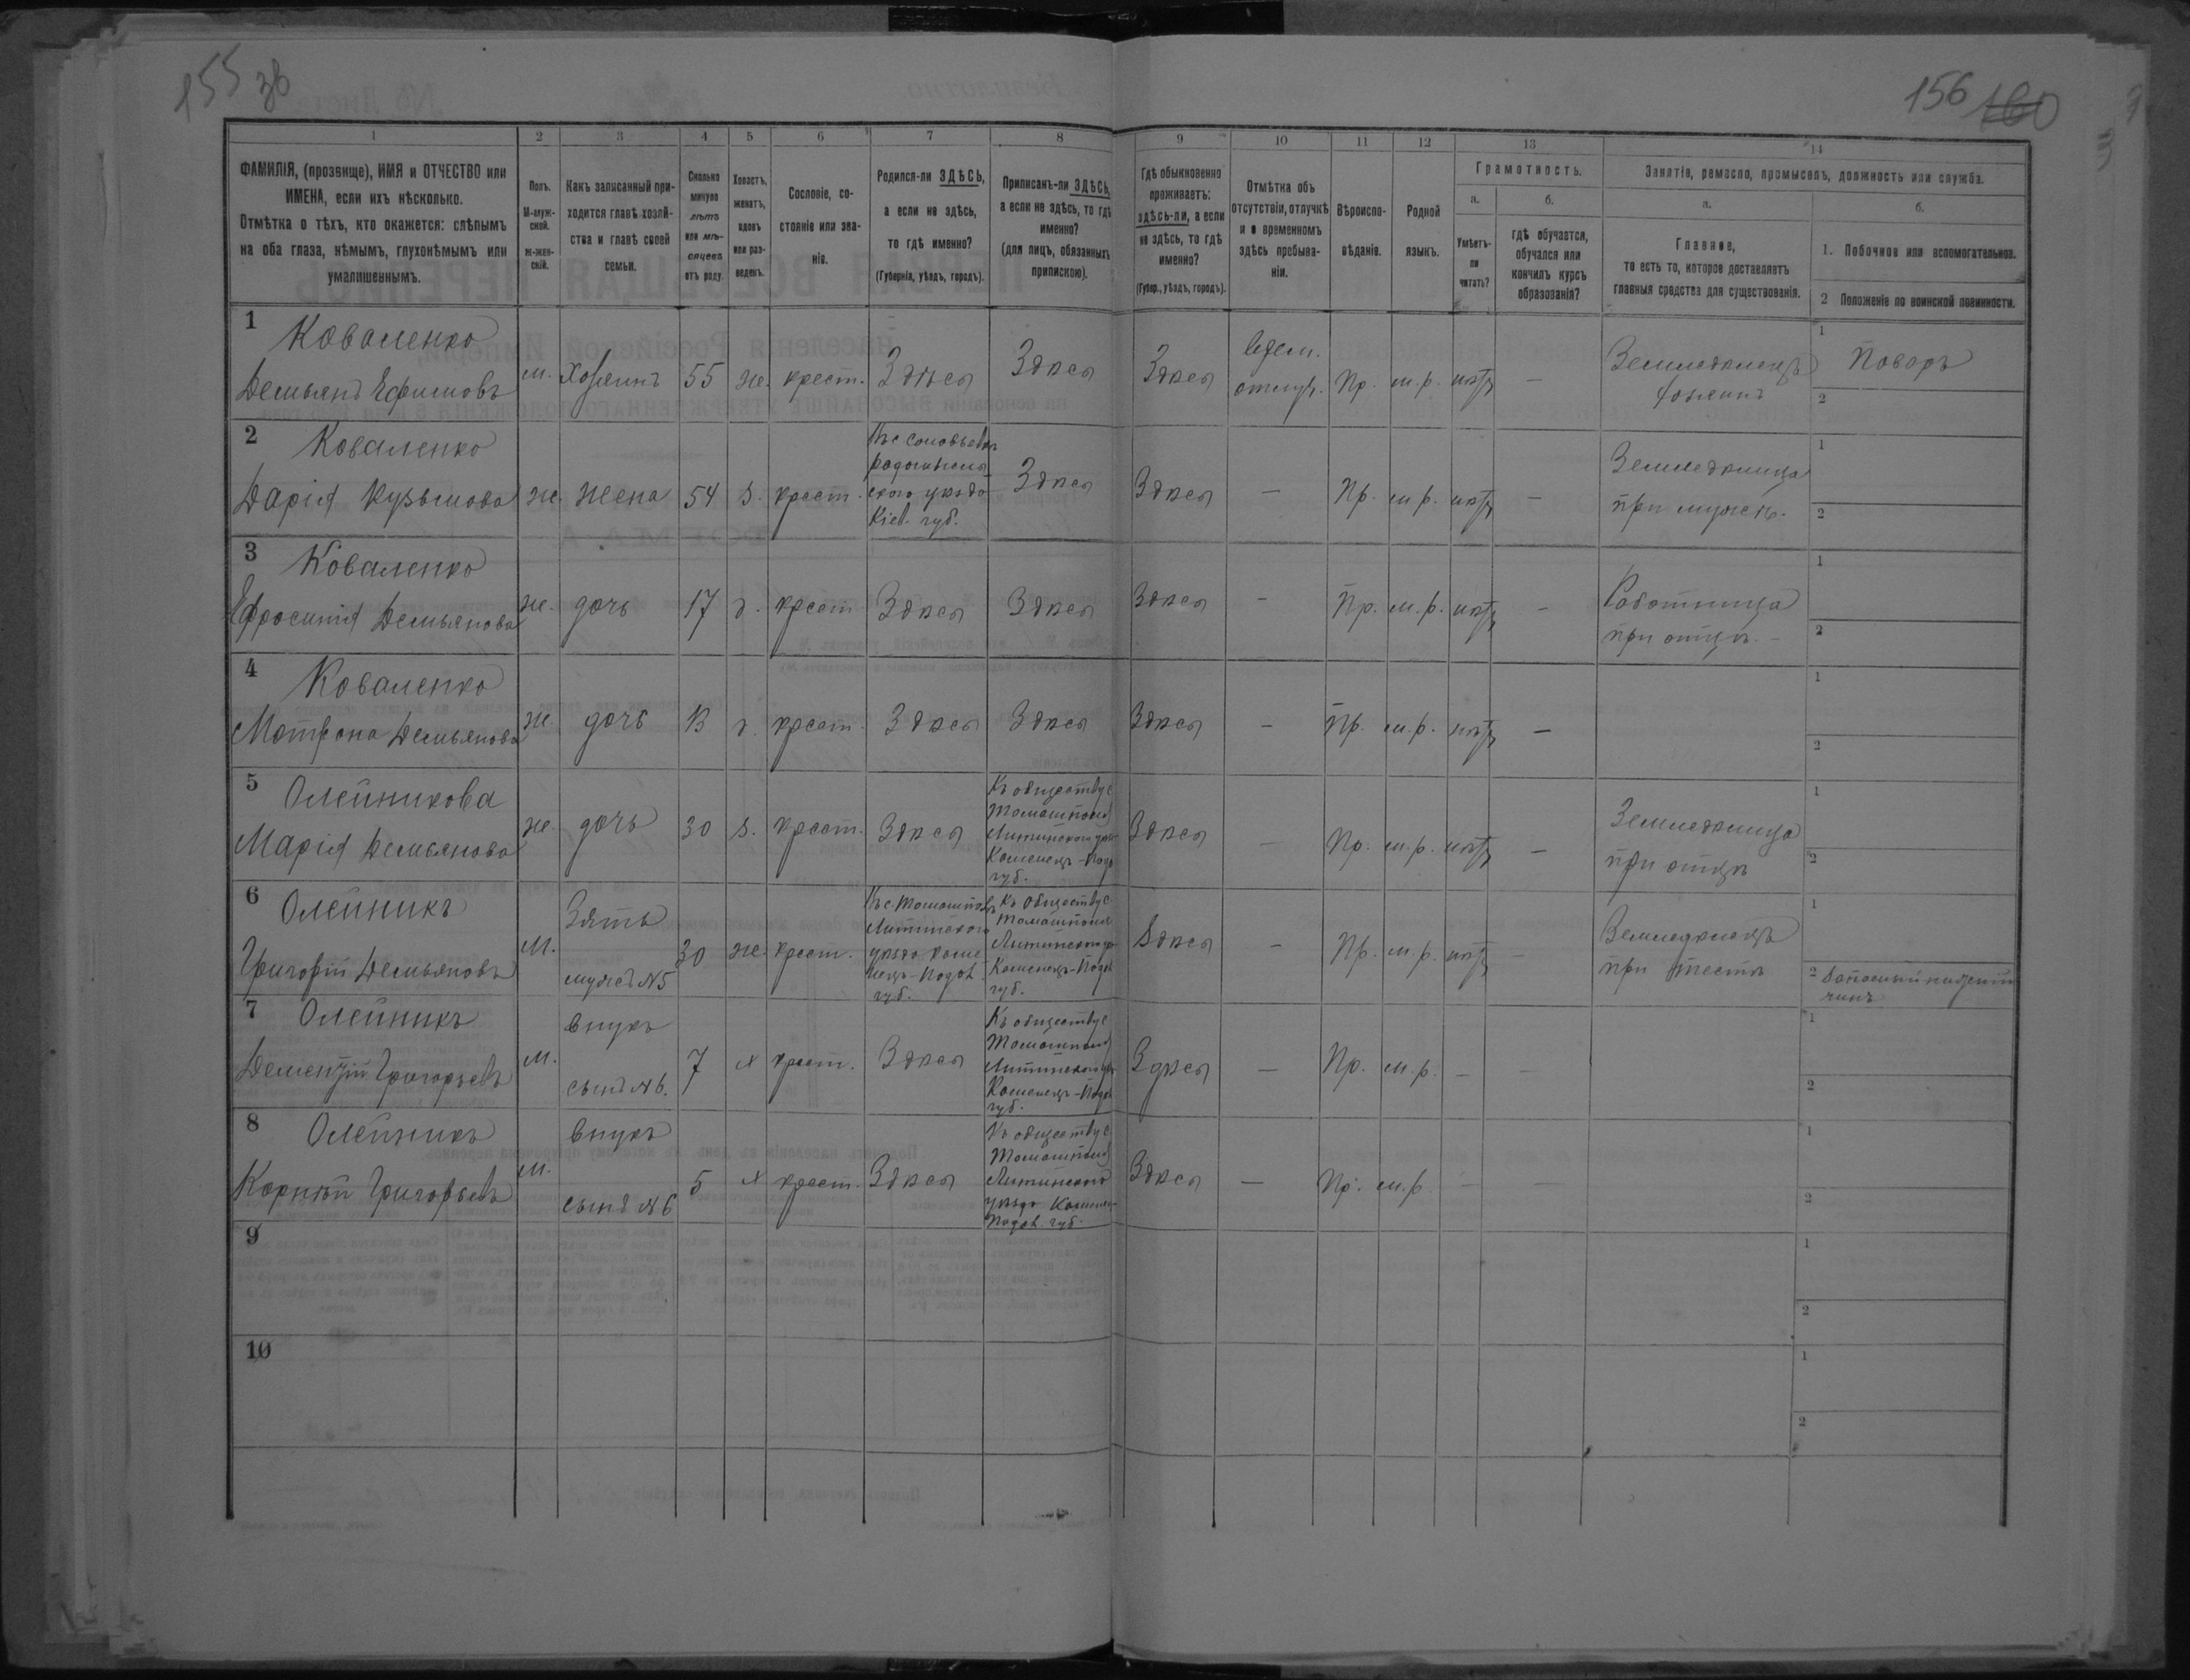 155 зв
156 160
1 2 3 4 5 6 7 8 9 10 11 12 13 14
ФАМИЛІЯ, (прозвище), ИМЯ и ОТЧЕСТВО или
ИМЕНА, если ихъ нѣсколько.
Отмѣтка о тѣхъ, кто окажется: слѣпымъ
на оба глаза, нѣмымъ, глухонѣмымъ или
умалишеннымъ.
Полъ.
М-муж-
ской.
ж-жен-
скій.
Какъ записанный при-
ходится главѣ хозяй-
ства и главѣ своей
семьи.
Сколько
минуло
лѣтъ
или мѣ-
сяцевъ
отъ роду.
Холостъ,
женатъ,
вдовъ
или раз-
веденъ.
Сословіе, со-
стояніе или зва-
ніе.
Родился-ли ЗДѢСЬ,
а если не здѣсь,
то гдѣ именно?
(Губернія, уѣздъ, городъ).
Приписанъ-ли ЗДѢСЬ,
а если не здѣсь, то гдѣ
именно?
(для лицъ, обязанныхъ
припискою).
Гдѣ обыкновенно
проживаетъ:
здѣсь-ли, а если
не здѣсь, то гдѣ
именно?
(Губер., уѣздъ, городъ).
Отмѣтка объ
отсутствіи, отлучкѣ
и о временномъ
здѣсь пребыва-
ніи.
Вѣроиспо-
вѣданіе.
Родной
языкъ.
Грамотность.
а.
Умѣетъ-
ли
читать?
б.
гдѣ обучается,
обучался или
кончилъ курсъ
образованія?
Занятіе, ремесло, промыселъ, должность или служба.
а.
Главное,
то есть то, которое доставляетъ
главныя средства для существованія.
б.
1. Побочное или вспомогательное.
2 Положеніе по воинской повинности.
1 Коваленко
Демьянъ Ефимовъ
м. хозяинъ 55 же. крест. Здѣсь Здѣсь Здѣсь
отлуч. Пр. м.р. нѣтъ —
Земледѣлецъ
хозяинъ
1 Поваръ
2
2 Коваленко
Дарія Кузьмова
ж. жена 54 з. крест.
уѣзда
Кіев. губ.
Здѣсь Здѣсь — Пр. м.р. нѣтъ —
Земледѣлица
при мужѣ.
1
2
3 Коваленко
Ефросинія Демьянова
ж. дочь 17 д. крест. Здѣсь Здѣсь Здѣсь — Пр. м.р. нѣтъ —
Работница
при отцѣ.
1
2
4 Коваленко
Матрона Демьянова
ж. дочь 13 д. крест. Здѣсь Здѣсь Здѣсь — Пр. м.р. нѣтъ —
1
2
5 Олейникова
Марія Демьянова
ж. дочь 30 з. крест. Здѣсь
Къ обществу с
Томашполя
Литинского
Каменец-Подо
губ.
Здѣсь — Пр. м.р. нѣтъ —
Земледѣлица
при отцѣ
1
2
6 Олейникъ
Григорій Демьяновъ
м.
Зять
мужъ №5
30 же. крест.
Литинского
уѣзда Каме
нецъ-Подол
губ.
Къ обществу с
Томашполя
Каменец-Подол
губ.
Здѣсь — Пр. м.р. нѣтъ —
Земледѣлецъ
при тестѣ
1
2 Запасный нижній
чинъ
7 Олейникъ
Дементій Григорьевъ
м.
внукъ
сынъ №6.
7 х крест. Здѣсь
Къ обществу с
Томашполя
Каменец-Подол
губ.
Здѣсь — Пр. м.р. — —
1
2
8 Олейникъ
Корнѣй Григорьевъ
м.
внукъ
сынъ №6
5 х крест. Здѣсь
Къ обществу с
Томашполя
Литинского
уѣзда Каменец
Подол. губ.
Здѣсь — Пр. м.р. — —
1
2
9
1
2
10
1
2